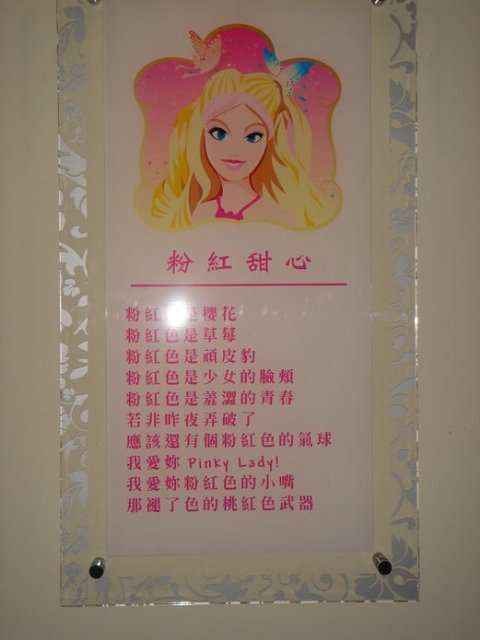 粉紅甜心
粉紅色是櫻花
粉紅色是草莓
粉紅色是頑皮豹
粉紅色是少女的臉頰
粉紅色是羞澀的青春
若非昨夜弄破了
應該還有個粉紅色的氣球
我愛妳 Pinky Lady!
我愛妳粉紅色的小嘴
那褪了色的桃紅色武器